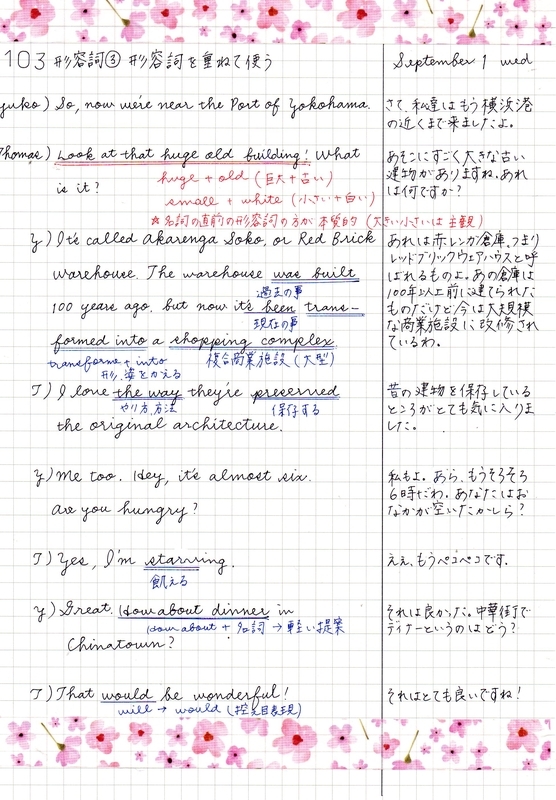 103 形容詞③ 形容詞を重ねて使う
September 1 wed
yuko) So, now we're near the Port of Yokohama.
さて、私達はもう横浜港
の近くまで来ましたよ。
Thomas) Look at that huge old building! What
is it?
huge + old (巨大+古い)
small + white (小さい+白い)
☆名詞の直前の形容詞の方が本質的 (大きい小さいは主観)
あそこにすごく大きな古い
建物がありますね。あれ
は何ですか?
Y) It's called Akarenga Soko, or Red Brick
warehouse. The warehouse was built
過去の事
100 years ago. but now it's been trans-
現在の事
formed into a shopping complex
transforme + into
形、姿をかえる
複合商業施設 (大型)
あれは赤レンガ倉庫、つまり
レッドブリックウェアハウスと呼
ばれるものよ。あの倉庫は
100年以上前に建てられた
ものだけど今は大規模
な商業施設に改修され
ているわ。
T) I love the way they're preserved
やり方、方法
保存する
the original architecture.
昔の建物を保存している
ところがとても気に入りま
した。
Y) Me too. Hey, it's almost six.
are you hungry?
私もよ。あら、もうそろそろ
6時だわ。あなたはお
なかが空いたかしら?
T) Yes, I'm starving.
飢える
ええ、もうペコペコです。
Y) Great. How about dinner in
How about + 名詞 → 軽い提案
Chinatown?
それは良かった。中華街で
ディナーというのはどう?
T) That would be wonderful!
will → would (控え目表現)
それはとても良いですね!